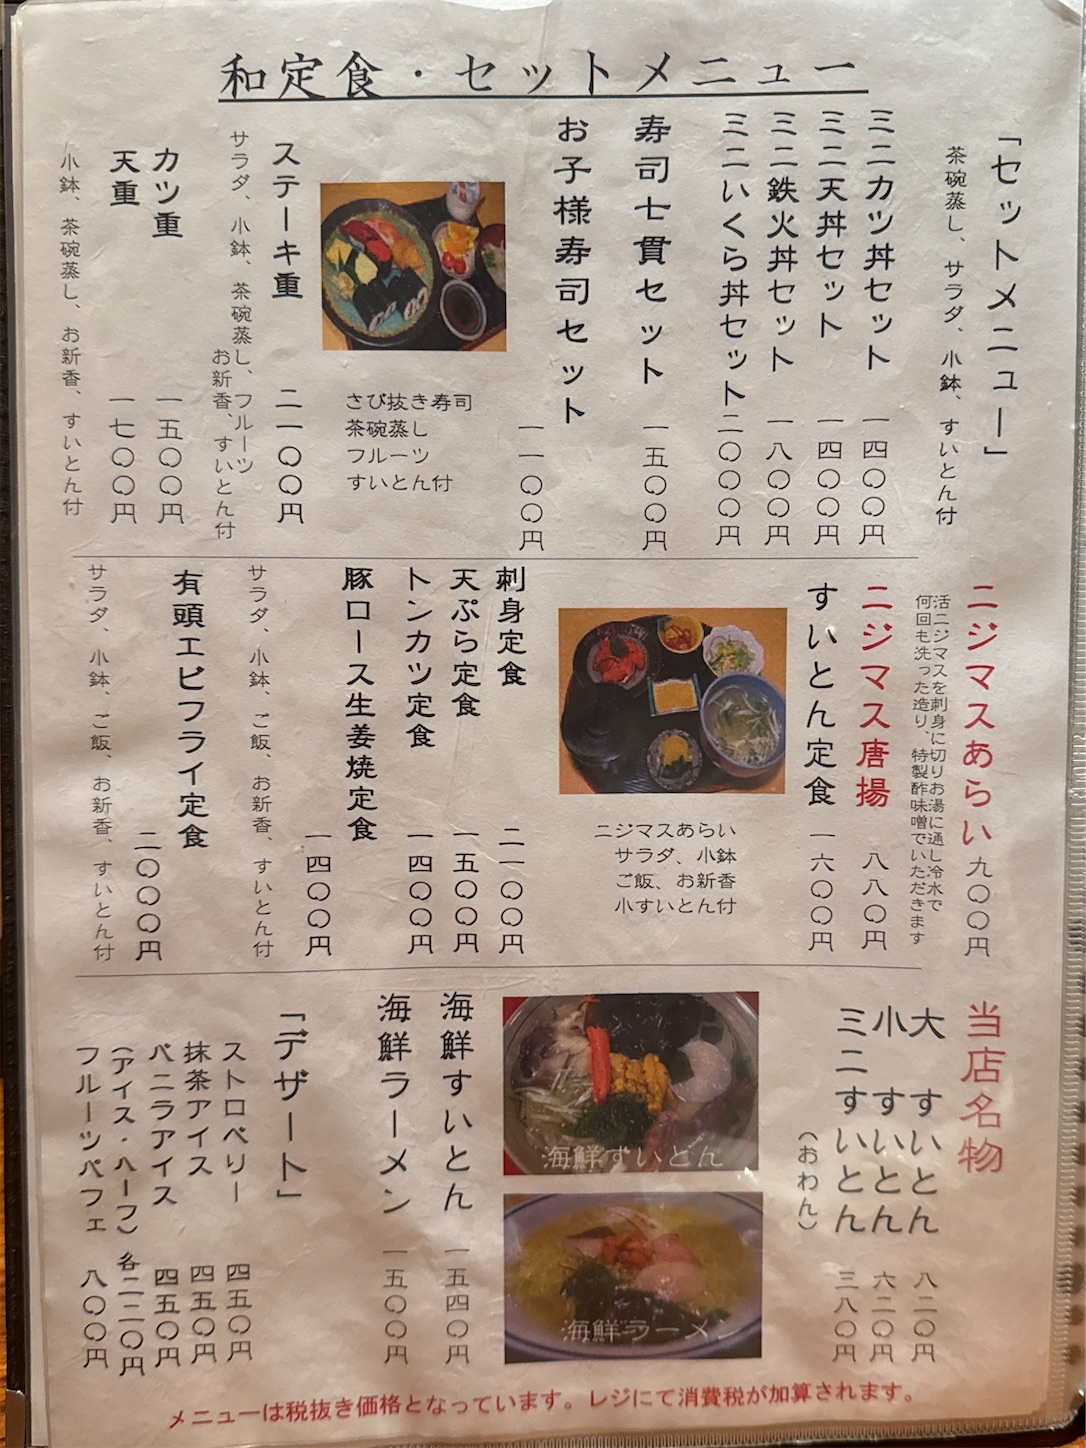 和定食・セットメニュー
「セットメニュー」
茶碗蒸し、サラダ、小鉢、すいとん付
ミニカツ丼セット 一四〇〇円
ミニ天丼セット 一四〇〇円
ミニ鉄火丼セット 一八〇〇円
ミニいくら丼セット 二〇〇〇円
寿司七貫セット 一五〇〇円
お子様寿司セット 一一〇〇円
さび抜き寿司
茶碗蒸し
フルーツ
すいとん付
ステーキ重 二一〇〇円
サラダ、小鉢、茶碗蒸し、フルーツ
お新香、すいとん付
カツ重 一五〇〇円
天重 一七〇〇円
小鉢、茶碗蒸し、お新香、すいとん付
ニジマスあらい 九〇〇円
活ニジマスを刺身に切りお湯に通し冷水で
何回も洗った造り、特製酢味噌でいただきます
ニジマス唐揚 八八〇円
すいとん定食 一六〇〇円
ニジマスあらい
サラダ、小鉢
ご飯、お新香
小すいとん付
刺身定食 二一〇〇円
天ぷら定食 一五〇〇円
トンカツ定食 一四〇〇円
豚ロース生姜焼定食 一四〇〇円
サラダ、小鉢、ご飯、お新香、すいとん付
有頭エビフライ定食 二〇〇〇円
サラダ、小鉢、ご飯、お新香、すいとん付
当店名物
大 すいとん 八二〇円
小 すいとん 六二〇円
ミニすいとん 三八〇円
（おわん）
海鮮すいとん
海鮮ラーメン
海鮮すいとん 一五四〇円
海鮮ラーメン 一五〇〇円
「デザート」
ストロベリー 四五〇円
抹茶アイス 四五〇円
バニラアイス 四五〇円
（アイス・ハーフ） 各二二〇円
フルーツパフェ 八〇〇円
メニューは税抜き価格となっています。レジにて消費税が加算されます。